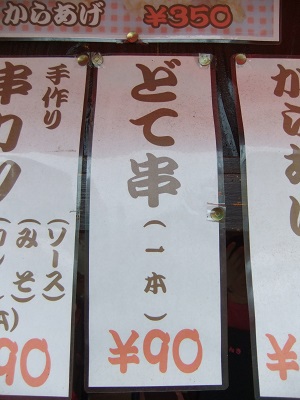 からあげ ¥350
からあげ
¥
どて串
(一本)
¥90
手作り
串カツ
(ソース)
(みそ)
90